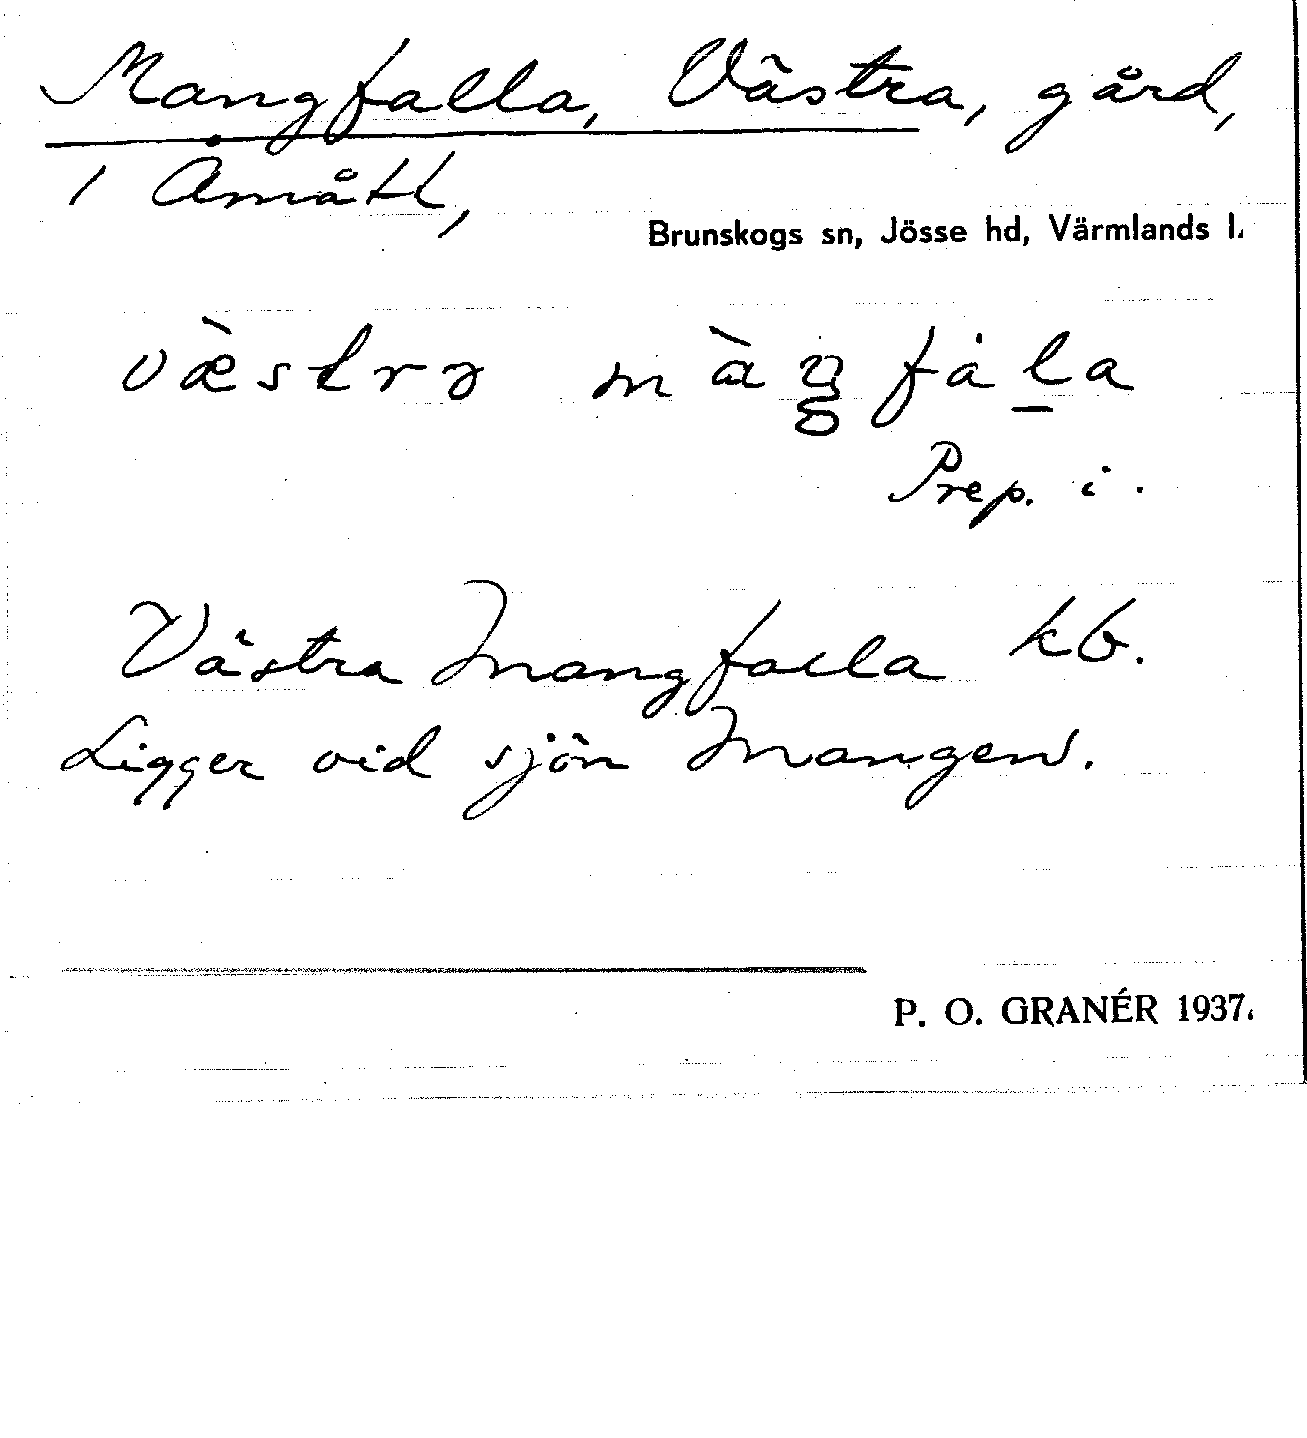 Mangfalla, Västra, gård,
1 Åmått,
Brunskogs sn, Jösse hd, Värmlands l.
Prep. i.
Västra Mangfalla kb.
Ligger vid sjön Mangen.
P. O. GRANÉR 1937.